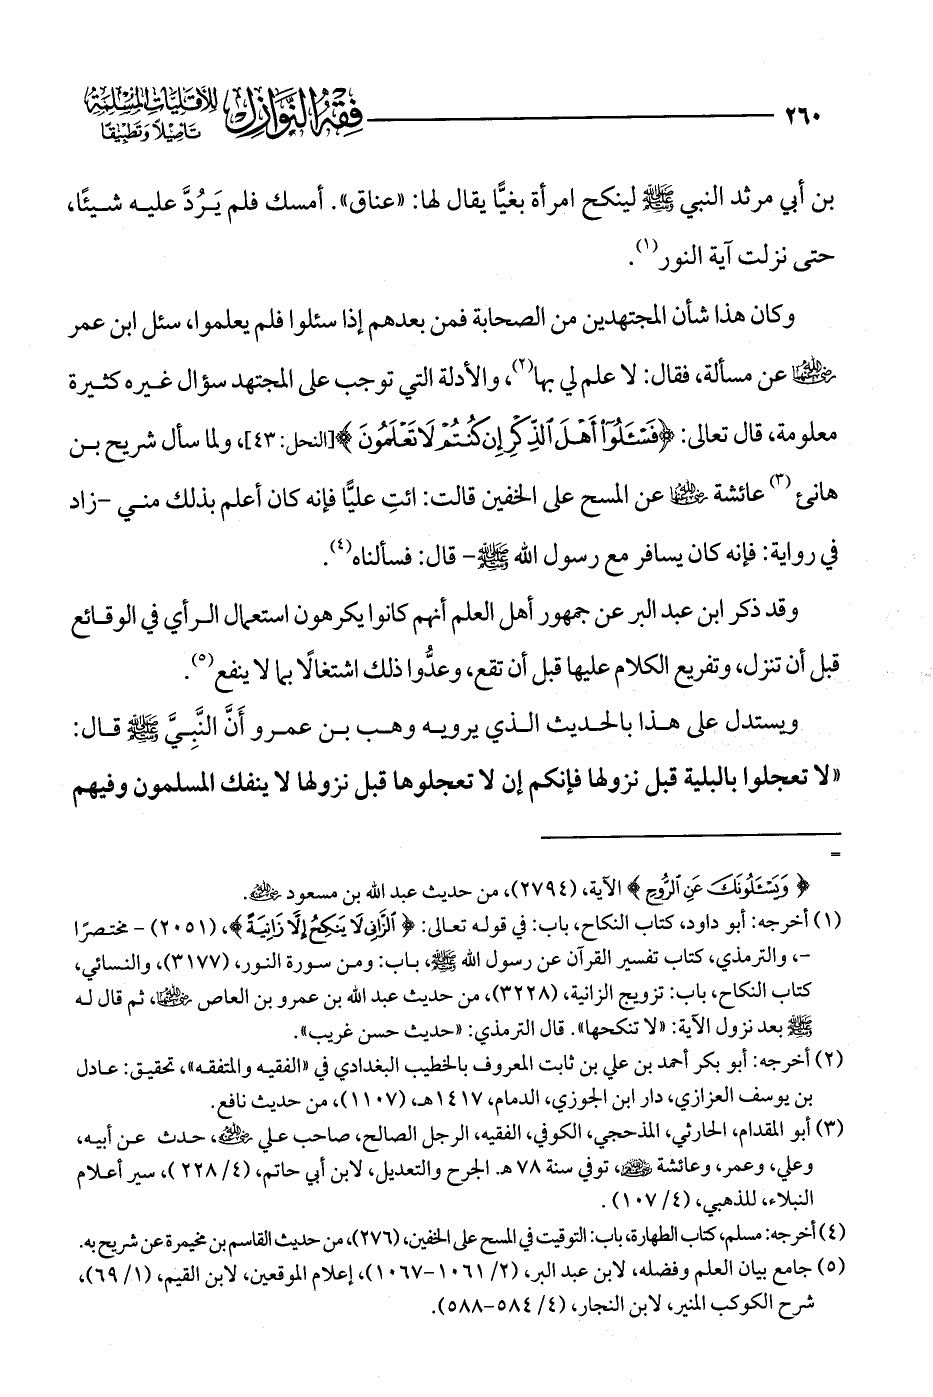 ٢٦٠
فقه النوازل للأقليات المسلمة
تأصيلًا وتطبيقًا
بن أبي مرثد النبي ﷺ لينكح امرأة بغيًّا يقال لها: «عناق». أمسك فلم يَرُدَّ عليه شيئًا،
حتى نزلت آية النور(١).
وكان هذا شأن المجتهدين من الصحابة فمن بعدهم إذا سئلوا فلم يعلموا، سئل ابن عمر
رضي الله عنهما عن مسألة، فقال: لا علم لي بها(٢)، والأدلة التي توجب على المجتهد سؤال غيره كثيرة
معلومة، قال تعالى: ﴿فَسْـَٔلُوٓا۟ أَهْلَ ٱلذِّكْرِ إِن كُنتُمْ لَا تَعْلَمُونَ﴾[النحل: ٤٣]، ولما سأل شريح بن
هانئ(٣) عائشة رضي الله عنها عن المسح على الخفين قالت: ائتِ عليًّا فإنه كان أعلم بذلك مني –زاد
في رواية: فإنه كان يسافر مع رسول الله ﷺ– قال: فسألناه(٤).
وقد ذكر ابن عبد البر عن جمهور أهل العلم أنهم كانوا يكرهون استعمال الرأي في الوقائع
قبل أن تنزل، وتفريع الكلام عليها قبل أن تقع، وعدُّوا ذلك اشتغالًا بما لا ينفع(٥).
ويستدل على هذا بالحديث الذي يرويه وهب بن عمرو أَنَّ النَّبِيَّ ﷺ قال:
«لا تعجلوا بالبلية قبل نزولها فإنكم إن لا تعجلوها قبل نزولها لا ينفك المسلمون وفيهم
=
﴿وَيَسْـَٔلُونَكَ عَنِ ٱلرُّوحِ﴾ الآية، (٢٧٩٤)، من حديث عبد الله بن مسعود رضي الله عنه.
(١) أخرجه: أبو داود، كتاب النكاح، باب: في قوله تعالى: ﴿ٱلزَّانِى لَا يَنكِحُ إِلَّا زَانِيَةً﴾، (٢٠٥١) – مختصرًا
–، والترمذي، كتاب تفسير القرآن عن رسول الله ﷺ، باب: ومن سورة النور، (٣١٧٧)، والنسائي،
كتاب النكاح، باب: تزويج الزانية، (٣٢٢٨)، من حديث عبد الله بن عمرو بن العاص رضي الله عنهما، ثم قال له
ﷺ بعد نزول الآية: «لا تنكحها». قال الترمذي: «حديث حسن غريب».
(٢) أخرجه: أبو بكر أحمد بن علي بن ثابت المعروف بالخطيب البغدادي في «الفقيه والمتفقه»، تحقيق: عادل
بن يوسف العزازي، دار ابن الجوزي، الدمام، ١٤١٧هـ، (١١٠٧)، من حديث نافع.
(٣) أبو المقدام، الحارثي، المذحجي، الكوفي، الفقيه، الرجل الصالح، صاحب علي رضي الله عنه، حدث عن أبيه،
وعلي، وعمر، وعائشة رضي الله عنهم، توفي سنة ٧٨ هـ. الجرح والتعديل، لابن أبي حاتم، (٤/ ٢٢٨ )، سير أعلام
النبلاء، للذهبي، (٤/ ١٠٧) .
(٤) أخرجه: مسلم، كتاب الطهارة، باب: التوقيت في المسح على الخفين، (٢٧٦)، من حديث القاسم بن مخيمرة عن شريح به.
(٥) جامع بيان العلم وفضله، لابن عبد البر، (٢/ ١٠٦١–١٠٦٧)، إعلام الموقعين، لابن القيم، (١/ ٦٩)،
شرح الكوكب المنير، لابن النجار، (٤/ ٥٨٤–٥٨٨).